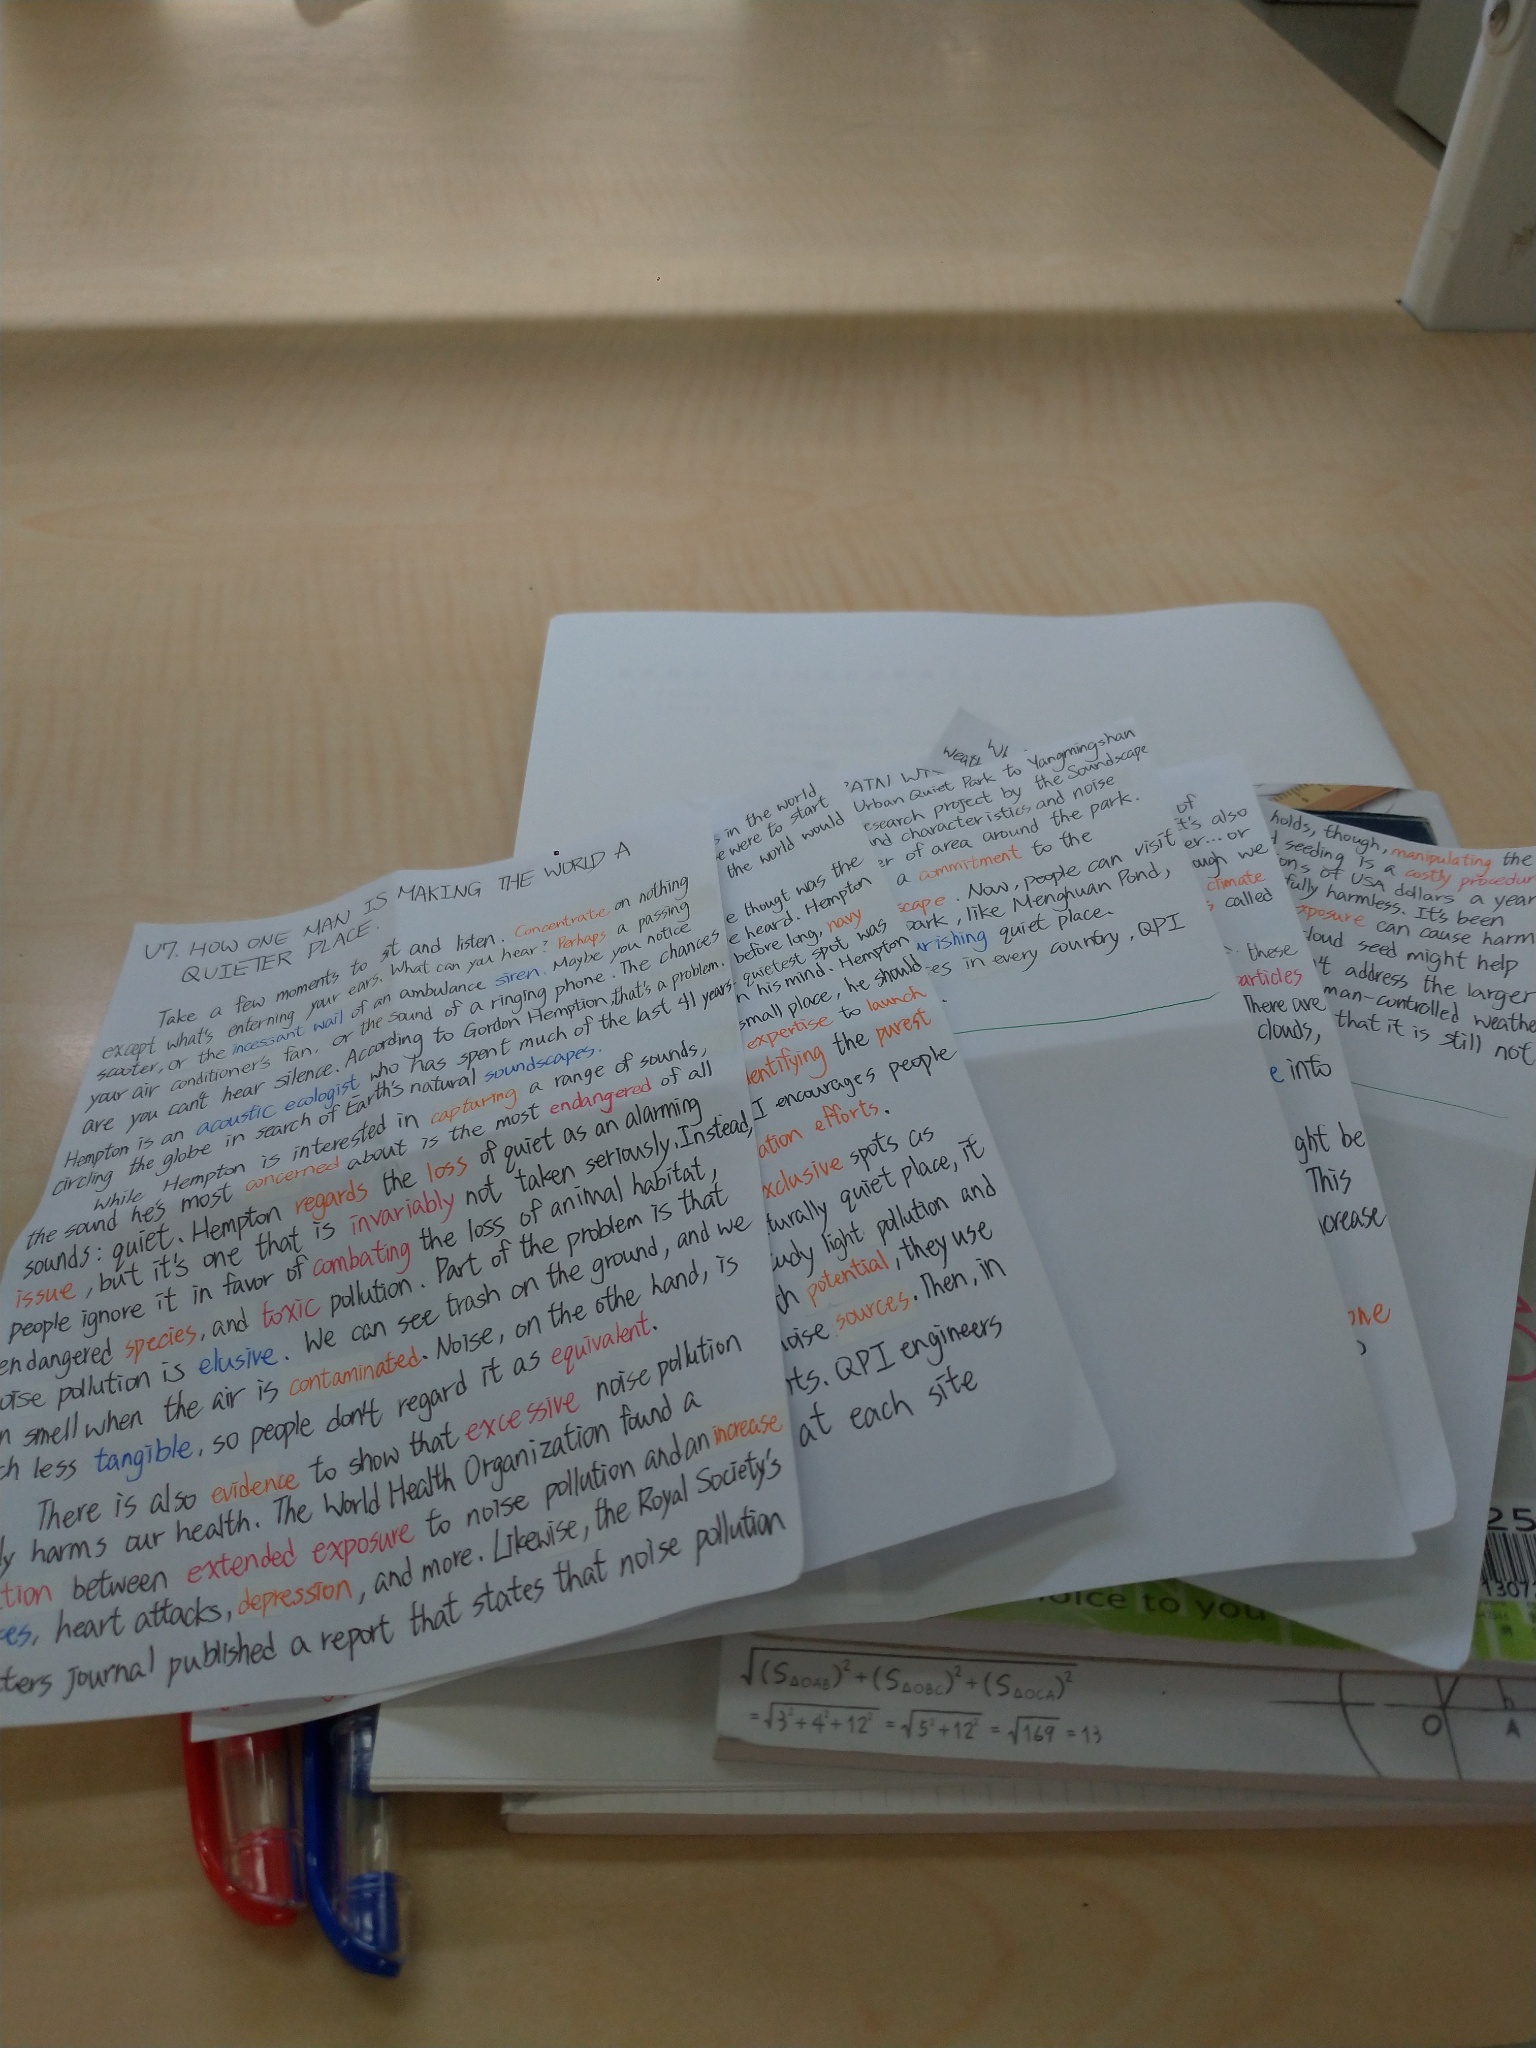 U7. HOW ONE MAN IS MAKING THE WORLD A
QUIETER PLACE.
Take a few moments to sit and listen. Concentrate on nothing
except what's enterning your ears. What can you hear? Perhaps a passing
scooter, or the incessant wail of an ambulance siren. Maybe you notice
your air conditioner's fan. or the sound of a ringing phone. The chances
are you can't hear silence. According to Gordon Hempton, that's a problem.
Hempton is an acoustic ecologist who has spent much of the last 41 years
circling the globe in search of Earth's natural soundscapes.
While Hempton is interested in capturing a range of sounds,
the sound he's most concerned about is the most endangered of all
sounds: quiet. Hempton regards the loss of quiet as an alarming
issue, but it's one that is invariably not taken seriously. Instead,
people ignore it in favor of combating the loss of animal habitat,
endangered species, and toxic pollution. Part of the problem is that
oise pollution is elusive. We can see trash on the ground, and we
n smell when the air is contaminated. Noise, on the othe hand, is
ch less tangible, so people don't regard it as equivalent.
There is also evidence to show that excessive noise pollution
ly harms our health. The World Health Organization found a
tion between extended exposure to noise pollution and an increase
es, heart attacks, depression, and more. Likewise, the Royal Society's
ters Journal published a report that states that noise pollution
s in the world
e were to start
the world would
e thougt was the
e heard. Hempton
before long, navy
quietest spot was
n his mind. Hempton
small place, he should
expertise to launch
entifying the purest
I encourages people
ation efforts.
xclusive spots as
turally quiet place, it
udy light pollution and
ch potential, they use
noise sources. Then, in
ts. QPI engineers
at each site
Urban Quiet Park to Yangmingshan
esearch project by the Soundscape
nd characteristics and noise
er of area around the park.
a commitment to the
scape. Now, people can visit
park, like Menghuan Pond,
rishing quiet place.
es in every country, QPI
of
t's also
er... or
ough we
climate
s called
these
particles
There are
clouds,
e into
ght be
This
crease
one
holds, though, manipulating the
d seeding is a costly procedur
ons of USA dollars a year
fully harmless. It's been
xposure can cause harm
cloud seed might help
't address the larger
man-controlled weathe
that it is still not
oice to you
25
√(S△OAB)²+(S△OBC)²+(S△OCA)²
=√3²+4²+12² = √5²+12² = √169 = 13
O A b